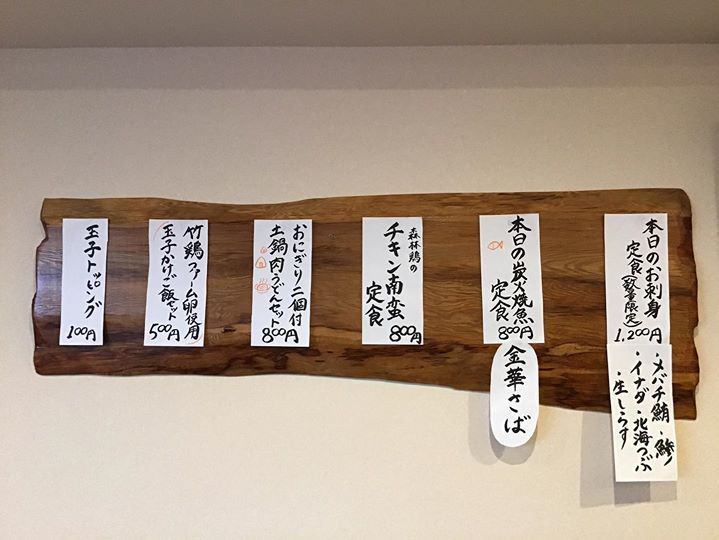 本日のお刺身
定食(数量限定)
1,200円
・メバチ鮪・鰺
・イナダ・北海つぶ
・生しらす
本日の炭火焼魚
定食
800円
金華さば
森林鶏の
チキン南蛮
定食
800円
おにぎり二個付
土鍋肉うどんセット
800円
竹鶏ファーム卵使用
玉子かけご飯セット
500円
玉子トッピング
100円